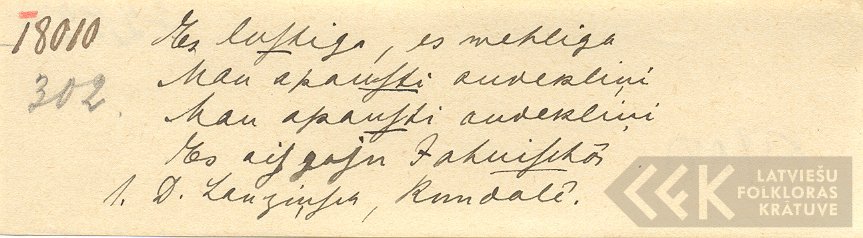 18010
302.
Es lustiga, es mehliga
Man apausti audekliņi
Man apausti audekliņi
Es aisgaju Jahnischōs
1. D. Rundalē.
LATVIEŠU
FOLKLORAS
KRĀTUVE